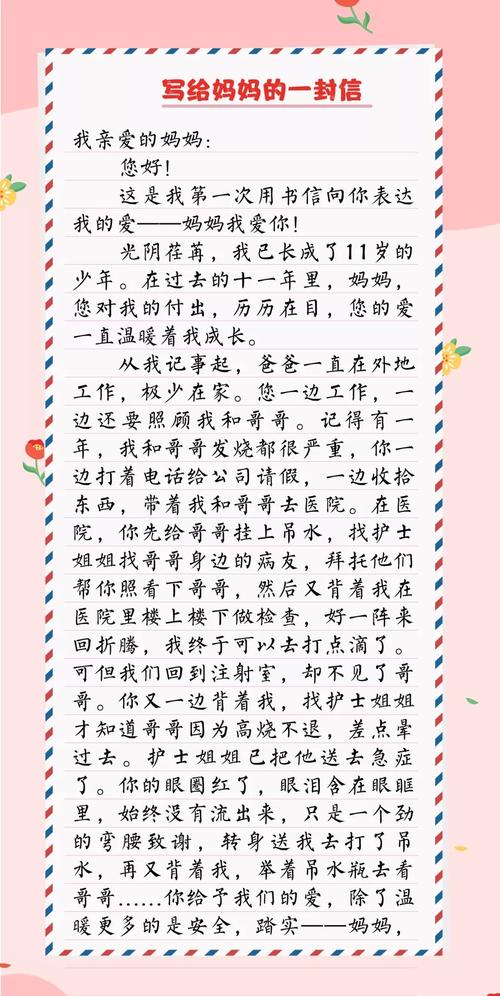 写给妈妈的一封信
我亲爱的妈妈:
您好!
这是我第一次用书信向你表达
我的爱——妈妈我爱你!
光阴荏苒，我已长成了11岁的
少年。在过去的十一年里，妈妈，
您对我的付出，历历在目，您的爱
一直温暖着我成长。
从我记事起，爸爸一直在外地
工作，极少在家。您一边工作，一
边还要照顾我和哥哥。记得有一
年，我和哥哥发烧都很严重，你一
边打着电话给公司请假，一边收拾
东西，带着我和哥哥去医院。在医
院，你先给哥哥挂上吊水，找护士
姐姐找哥哥身边的病友，拜托他们
帮你照看下哥哥，然后又背着我在
医院里楼上楼下做检查，好一阵来
回折腾，我终于可以去打点滴了。
可但我们回到注射室，却不见了哥
哥。你又一边背着我，找护士姐姐
才知道哥哥因为高烧不退，差点晕
过去。护士姐姐已把他送去急症
了。你的眼圈红了，眼泪含在眼眶
里，始终没有流出来，只是一个劲
的弯腰致谢，转身送我去打了吊
水，再又背着我，举着吊水瓶去看
哥哥……你给予我们的爱，除了温
暖更多的是安全，踏实——妈妈，